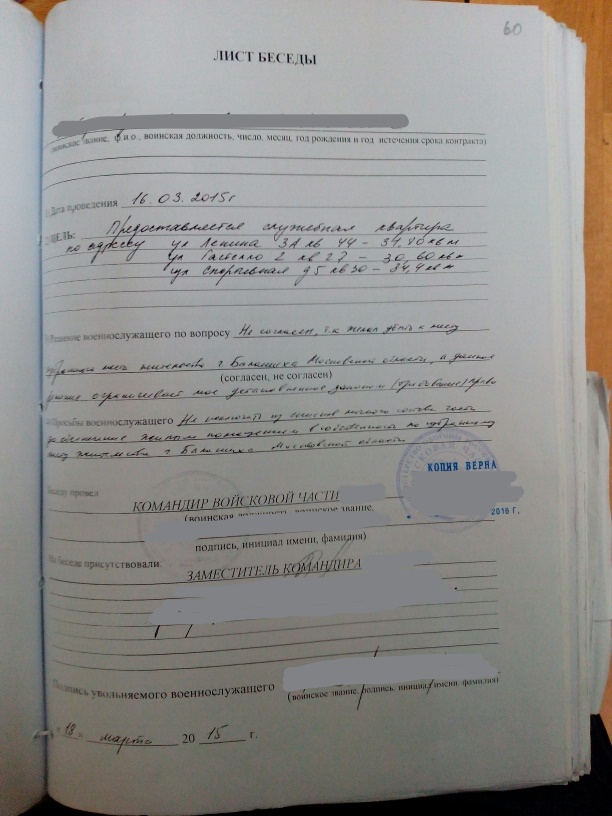 60
ЛИСТ БЕСЕДЫ
(воинское звание, ф.и.о., воинская должность, число, месяц, год рождения и год истечения срока контракта)
Дата проведения 16.03.2015г
ЦЕЛЬ: Предоставляется служебная квартира
по адресу ул Ленина 3А кв 44 – 34,80 кв м
ул Гастелло 2 кв 27 – 30,60 кв м
ул Спортивная д5 кв30 – 34,4 кв м
Решение военнослужащего по вопросу Не согласен, т.к желаю убыть к месту
жительства г. Балашиха Московской области, а данное
(согласен, не согласен)
ограничивает мое установленное законом право
Просьбы военнослужащего Не исключать из списков личного состава части
до обеспечения жилым помещением в собственность по избранному
месту жительства г. Балашиха Московской области.
КОПИЯ ВЕРНА
2016 г.
Беседу провел
КОМАНДИР ВОЙСКОВОЙ ЧАСТИ
(воинская должность, воинское звание,
подпись, инициал имени, фамилия)
На беседе присутствовали
ЗАМЕСТИТЕЛЬ КОМАНДИРА
Подпись увольняемого военнослужащего
(воинское звание, подпись, инициал имени, фамилия)
марта 20 15 г.